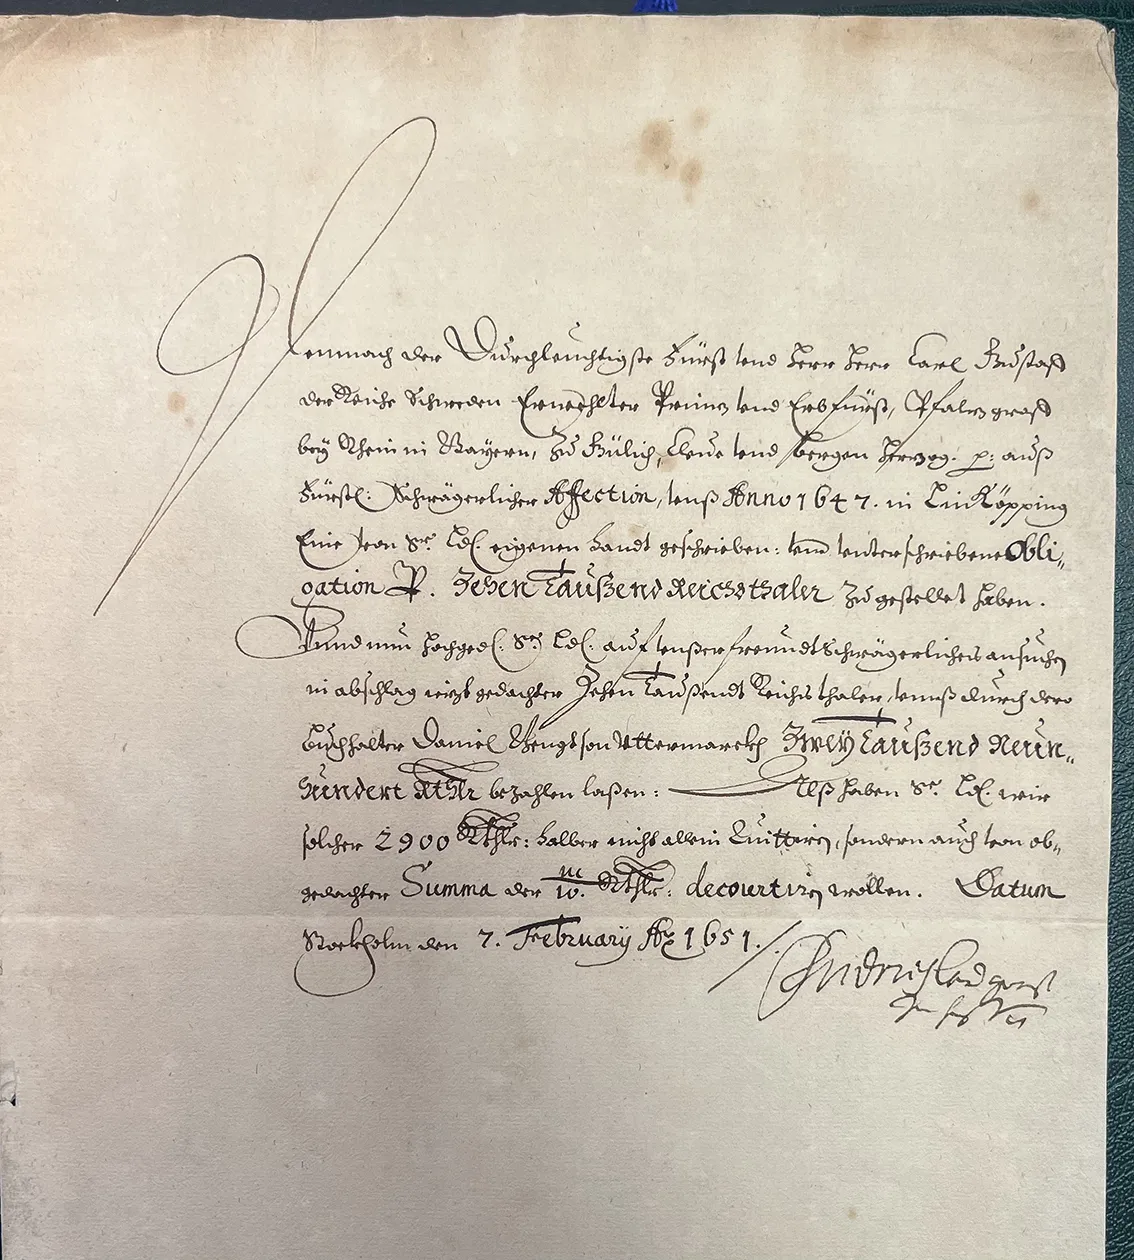 Demnach der Durchleuchtigste Fürst vnd Herr Herr Carl Gustaff
der Reiche Schweden Erwehlter Printz vnd Erbfürst, Pfaltzgraff
bey Rhein in Bayern, zu Gülich, Cleue vnd Bergen Hertzog. p: auß
Fürstl: Schwägerlicher Affection, vnß Anno 1647. in Linköpping
Eine von Sr. Ld. eigenen handt geschrieben: vnd vnterschriebene Obli-
gation P. Zehen Taußend Reichsthaler zugestellet haben.
Vnnd nun hochged. Se. Ld. auf vnßer freundtschwägerliches ansuchen
in abschlag itzt gedachter Zehen Taußendt Reichsthaler, vnnß durch dero
Buchhalter Daniel Bengtson Uttermarckh Zwey Taußend Neun-
hundert Rthlr bezahlen laßen: Alß haben Sr. Ld. wir
solcher 2900 Rthlr: halber nicht allein Quittiren, sondern auch von ob-
gedachter Summa der m/10. Rthlr: decourtiren wollen. Datum
Stockholm den 7. February Ao 1651.